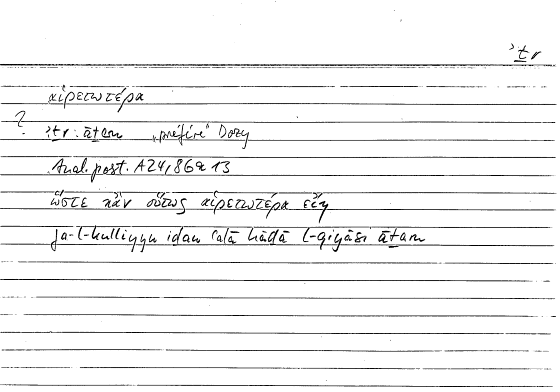 ʾṯr
αἱρετωτέρα
?
ʾṯr : āṯaru „préféré" Dozy
Anal. post. A24, 86a 13
ὥστε κἂν οὕτως αἱρετωτέρα εἴη
fa-l-kulliyyu iḏan ʿalā hāḏā l-qiyāsi āṯaru